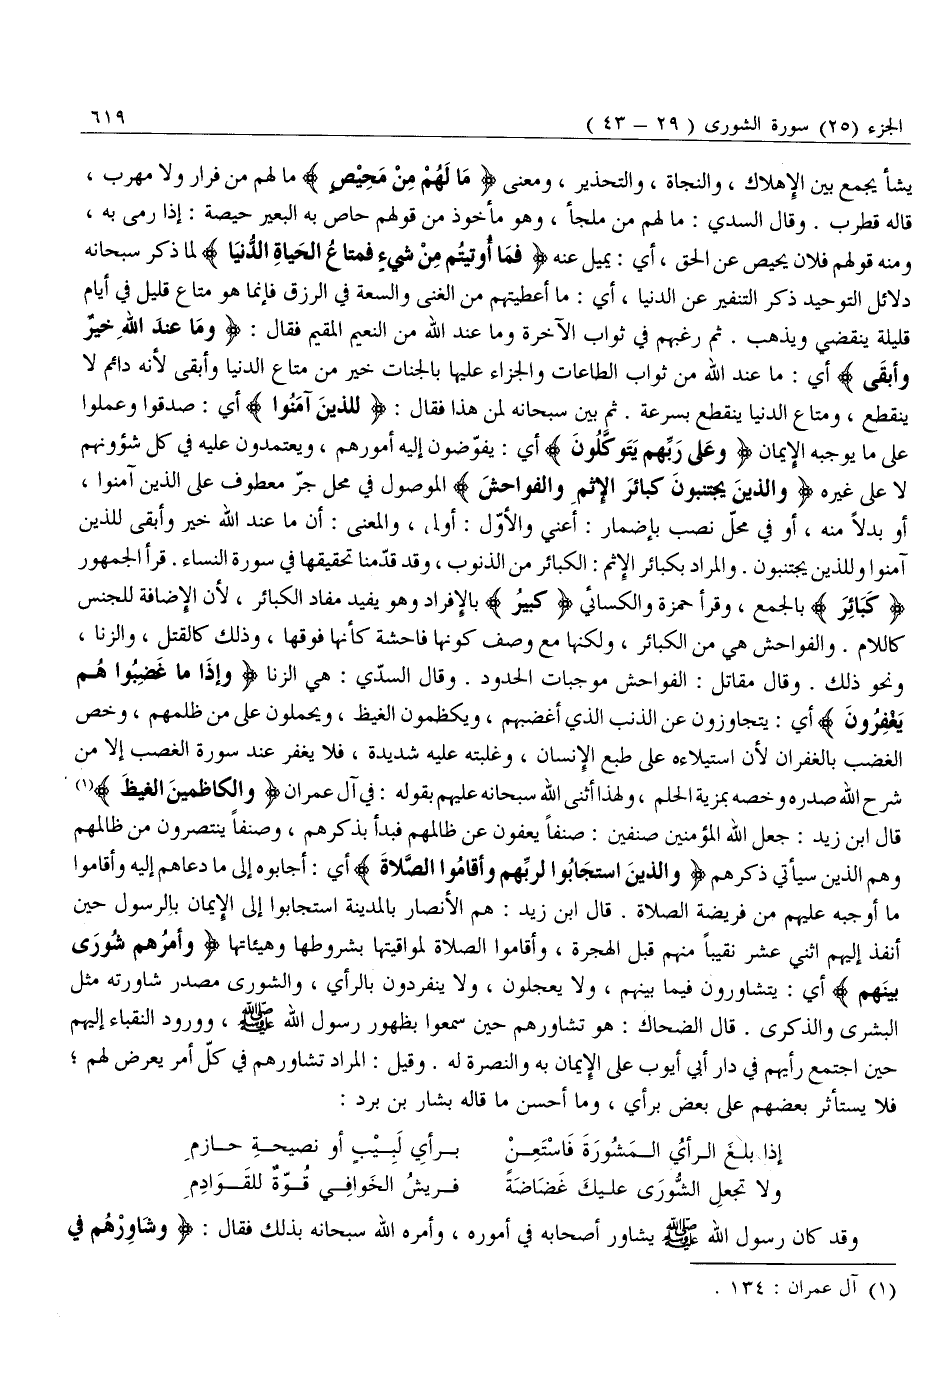 الجزء (٢٥) سورة الشورى ( ٢٩ – ٤٣ ) ٦١٩
يشأ يجمع بين الإهلاك ، والنجاة ، والتحذير ، ومعنى ﴿ مَا لَهُمْ مِنْ مَحِيْصٍ ﴾ ما لهم من فرار ولا مهرب ،
قاله قطرب . وقال السدي : ما لهم من ملجأ ، وهو مأخوذ من قولهم حاص به البعير حيصة : إذا رمى به ،
ومنه قولهم فلان يحيص عن الحق ، أي : يميل عنه ﴿ فَمَا أُوتيتُم مِنْ شيءٍ فمتاعُ الحَياةِ الدُّنيَا ﴾ لما ذكر سبحانه
دلائل التوحيد ذكر التنفير عن الدنيا ، أي : ما أعطيتهم من الغنى والسعة في الرزق فإنما هو متاع قليل في أيام
قليلة ينقضي ويذهب . ثم رغبهم في ثواب الآخرة وما عند الله من النعيم المقيم فقال : ﴿ ومَا عندَ اللهِ خيرٌ
وأبقَى ﴾ أي : ما عند الله من ثواب الطاعات والجزاء عليها بالجنات خير من متاع الدنيا وأبقى لأنه دائم لا
ينقطع ، ومتاع الدنيا ينقطع بسرعة . ثم بين سبحانه لمن هذا فقال : ﴿ للذينَ آمَنُوا ﴾ أي : صدقوا وعملوا
على ما يوجبه الإيمان ﴿ وعَلى رَبِّهم يَتَوكَّلُونَ ﴾ أي : يفوّضون إليه أمورهم ، ويعتمدون عليه في كل شؤونهم
لا على غيره ﴿ والذينَ يجتنبونَ كبائرَ الإثمِ والفواحشَ ﴾ الموصول في محل جرّ معطوف على الذين آمنوا ،
أو بدلاً منه ، أو في محلّ نصب بإضمار : أعني والأوّل : أولى ، والمعنى : أن ما عند الله خير وأبقى للذين
آمنوا وللذين يجتنبون . والمراد بكبائر الإثم : الكبائر من الذنوب ، وقد قدّمنا تحقيقها في سورة النساء . قرأ الجمهور
﴿ كَبَائِرَ ﴾ بالجمع ، وقرأ حمزة والكسائي ﴿ كبيرُ ﴾ بالإفراد وهو يفيد مفاد الكبائر ، لأن الإضافة للجنس
كاللام . والفواحش هي من الكبائر ، ولكنها مع وصف كونها فاحشة كأنها فوقها ، وذلك كالقتل ، والزنا ،
ونحو ذلك . وقال مقاتل : الفواحش موجبات الحدود . وقال السدّي : هي الزنا ﴿ وإذَا ما غَضِبُوا هُم
يَغْفِرُونَ ﴾ أي : يتجاوزون عن الذنب الذي أغضبهم ، ويكظمون الغيظ ، ويحملون على من ظلمهم ، وخص
الغضب بالغفران لأن استيلاءه على طبع الإنسان ، وغلبته عليه شديدة ، فلا يغفر عند سورة الغضب إلا من
شرح الله صدره وخصه بمزية الحلم ، ولهذا أثنى الله سبحانه عليهم بقوله : في آل عمران ﴿ والكاظمينَ الغيظَ ﴾(١)
قال ابن زيد : جعل الله المؤمنين صنفين : صنفاً يعفون عن ظالمهم فبدأ بذكرهم ، وصنفاً ينتصرون من ظالمهم
وهم الذين سيأتي ذكرهم ﴿ والذينَ استجَابُوا لربِّهم وأقامُوا الصَّلاةَ ﴾ أي : أجابوه إلى ما دعاهم إليه وأقاموا
ما أوجبه عليهم من فريضة الصلاة . قال ابن زيد : هم الأنصار بالمدينة استجابوا إلى الإيمان بالرسول حين
أنفذ إليهم اثني عشر نقيباً منهم قبل الهجرة ، وأقاموا الصلاة لمواقيتها بشروطها وهيئاتها ﴿ وأمرُهم شُورَى
بينَهم ﴾ أي : يتشاورون فيما بينهم ، ولا يعجلون ، ولا ينفردون بالرأي ، والشورى مصدر شاورته مثل
البشرى والذكرى . قال الضحاك : هو تشاورهم حين سمعوا بظهور رسول الله ﷺ ، وورود النقباء إليهم
حين اجتمع رأيهم في دار أبي أيوب على الإيمان به والنصرة له . وقيل : المراد تشاورهم في كلّ أمر يعرض لهم ؛
فلا يستأثر بعضهم على بعض برأي ، وما أحسن ما قاله بشار بن برد :
إذا بلغَ الرأيُ المَشُورَةَ فَاسْتَعِنْ برأيِ لَبِيْبٍ أو نصيحةِ حازمِ
ولا تجعلِ الشُّورَى عليكَ غَضَاضَةً فريشُ الخَوافِي قُوّةٌ للقَوَادِمِ
وقد كان رسول الله ﷺ يشاور أصحابه في أموره ، وأمره الله سبحانه بذلك فقال : ﴿ وشَاوِرْهُم في
(١) آل عمران : ١٣٤ .